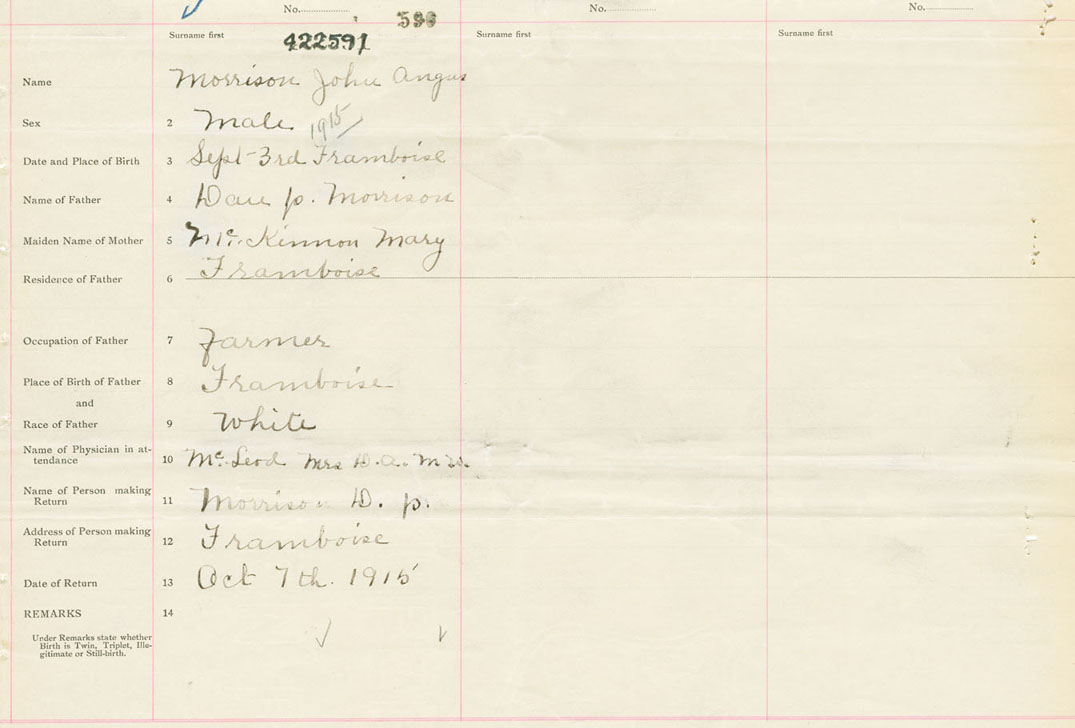 No. No. No.
599
Surname first 422591 Surname first Surname first
Name Morrison John Angus
Sex 2 Male 1915
Date and Place of Birth 3 Sept 3rd Framboise
Name of Father 4 Dan p. Morrison
Maiden Name of Mother 5 Mc. Kinnon Mary
Residence of Father 6 Framboise
Occupation of Father 7 Farmer
Place of Birth of Father 8 Framboise
and
Race of Father 9 White
Name of Physician in at-
tendance 10 Mc. Leod Mrs D. A.
Name of Person making
Return 11 Morrison D. p.
Address of Person making
Return 12 Framboise
Date of Return 13 Oct 7th. 1915
REMARKS 14
Under Remarks state whether
Birth is Twin, Triplet, Ille-
gitimate or Still-birth.